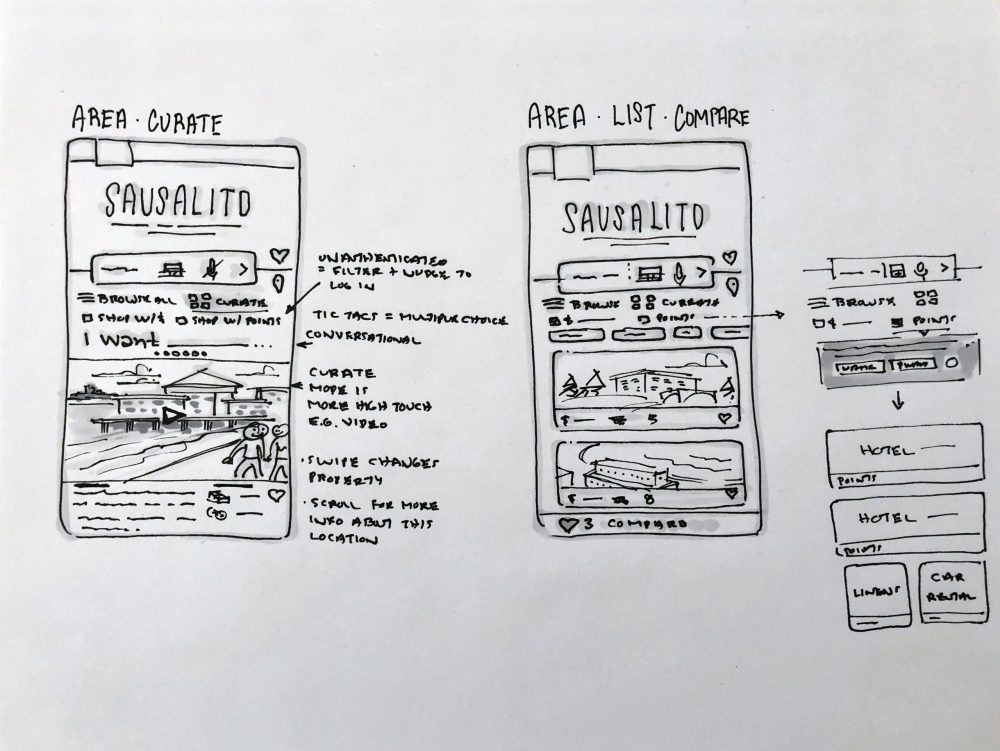 AREA · CURATE
SAUSALITO
BROWSE ALL CURATE
SHOP W/$ SHOP W/ POINTS
I Want
UNAUTHENTICATED
= FILTER + NUDGE TO
LOG IN
TIC TACS = MULTIPLE CHOICE
CONVERSATIONAL
CURATE
MODE IS
MORE HIGH TOUCH
E.G. VIDEO
· SWIPE CHANGES
PROPERTY
· SCROLL FOR MORE
INFO ABOUT THIS
LOCATION
AREA · LIST · COMPARE
SAUSALITO
BROWSE CURRATE
$ POINTS
$ 5
$ 8
3 COMPARE
BROWSE
$ POINTS
HOTEL
POINTS
HOTEL
POINTS
LINENS
CAR
RENTAL